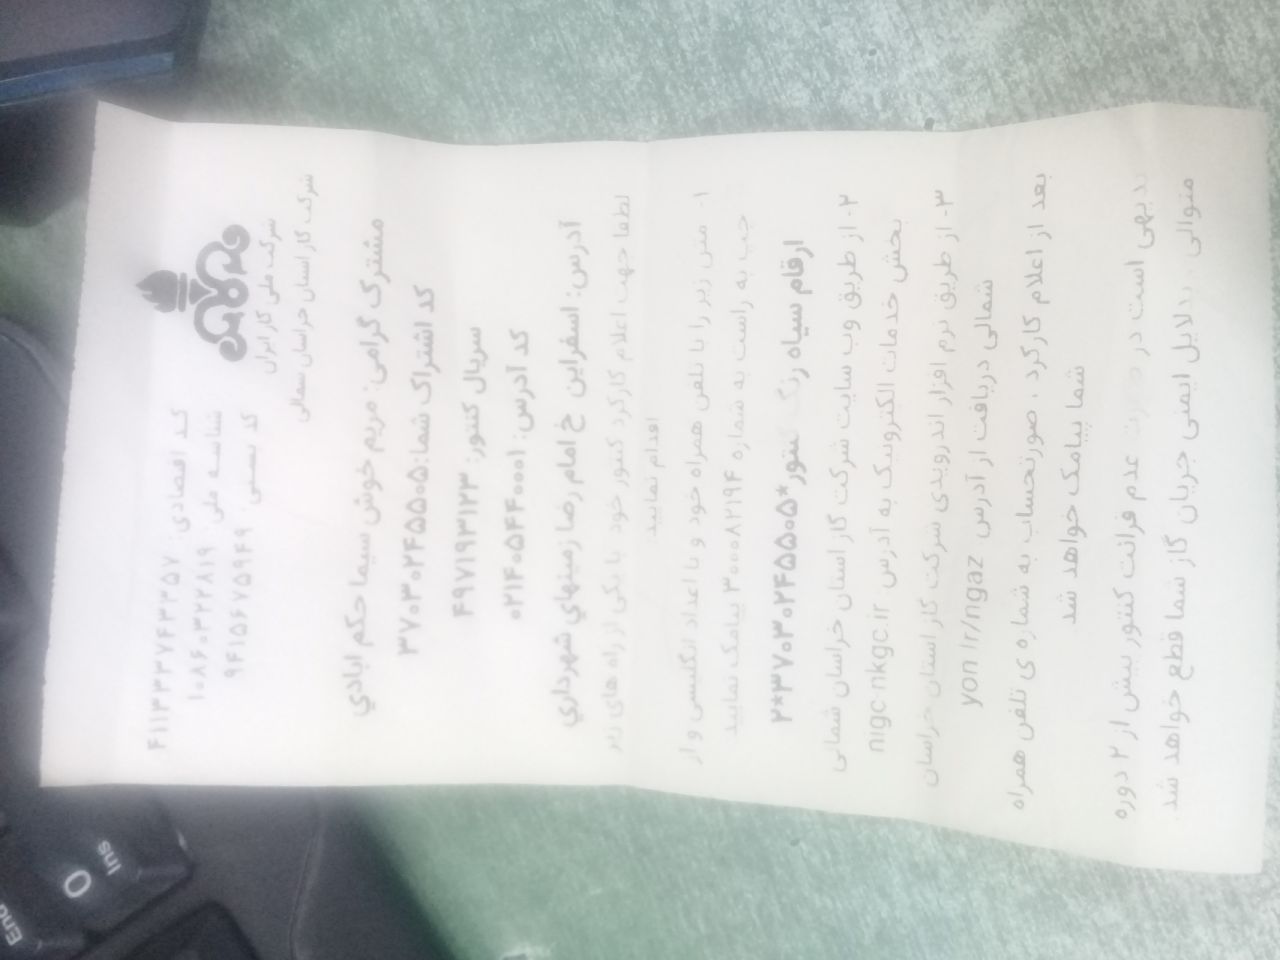 شرکت ملی گاز ایران
شرکت گاز استان خراسان شمالی
کد اقتصادی: ۴۱۱۳۳۳۷۴۳۳۵۷
شناسه ملی: ۱۰۸۶۰۳۲۲۸۱۹
کد پستی: ۹۴۱۵۶۷۵۹۴۹
مشترک گرامی: مریم خوش سیما حکم ابادي
کد اشتراک شما: ۳۷۰۳۰۲۴۵۵۰۰۵
سریال کنتور: ۴۹۷۱۹۳۱۲۳
کد آدرس: ۰۲۱۴۰۵۴۴۰۰۰۱
آدرس: اسفراین خ امام رضا زمینهاي شهرداري
لطفا جهت اعلام کارکرد کنتور خود با یکی از راه های زیر
اقدام نمایید:
۱- متن زیر را با تلفن همراه خود و با اعداد انگلیسی و از
چپ به راست به شماره ۳۰۰۰۸۲۱۹۴ پیامک نمایید
ارقام سیاه رنگ کنتور*۳۷۰۳۰۲۴۵۵۰۰۵*۲
۲- از طریق وب سایت شرکت گاز استان خراسان شمالی
بخش خدمات الکترونیک به آدرس nigc-nkgc.ir
۳- از طریق نرم افزار اندرویدی شرکت گاز استان خراسان
شمالی دریافت از آدرس yon.ir/ngaz
بعد از اعلام کارکرد ، صورتحساب به شماره ی تلفن همراه
شما پیامک خواهد شد
بدیهی است در صورت عدم قرائت کنتور بیش از ۲ دوره
متوالی ، بدلایل ایمنی جریان گاز شما قطع خواهد شد.
0
Ins
End